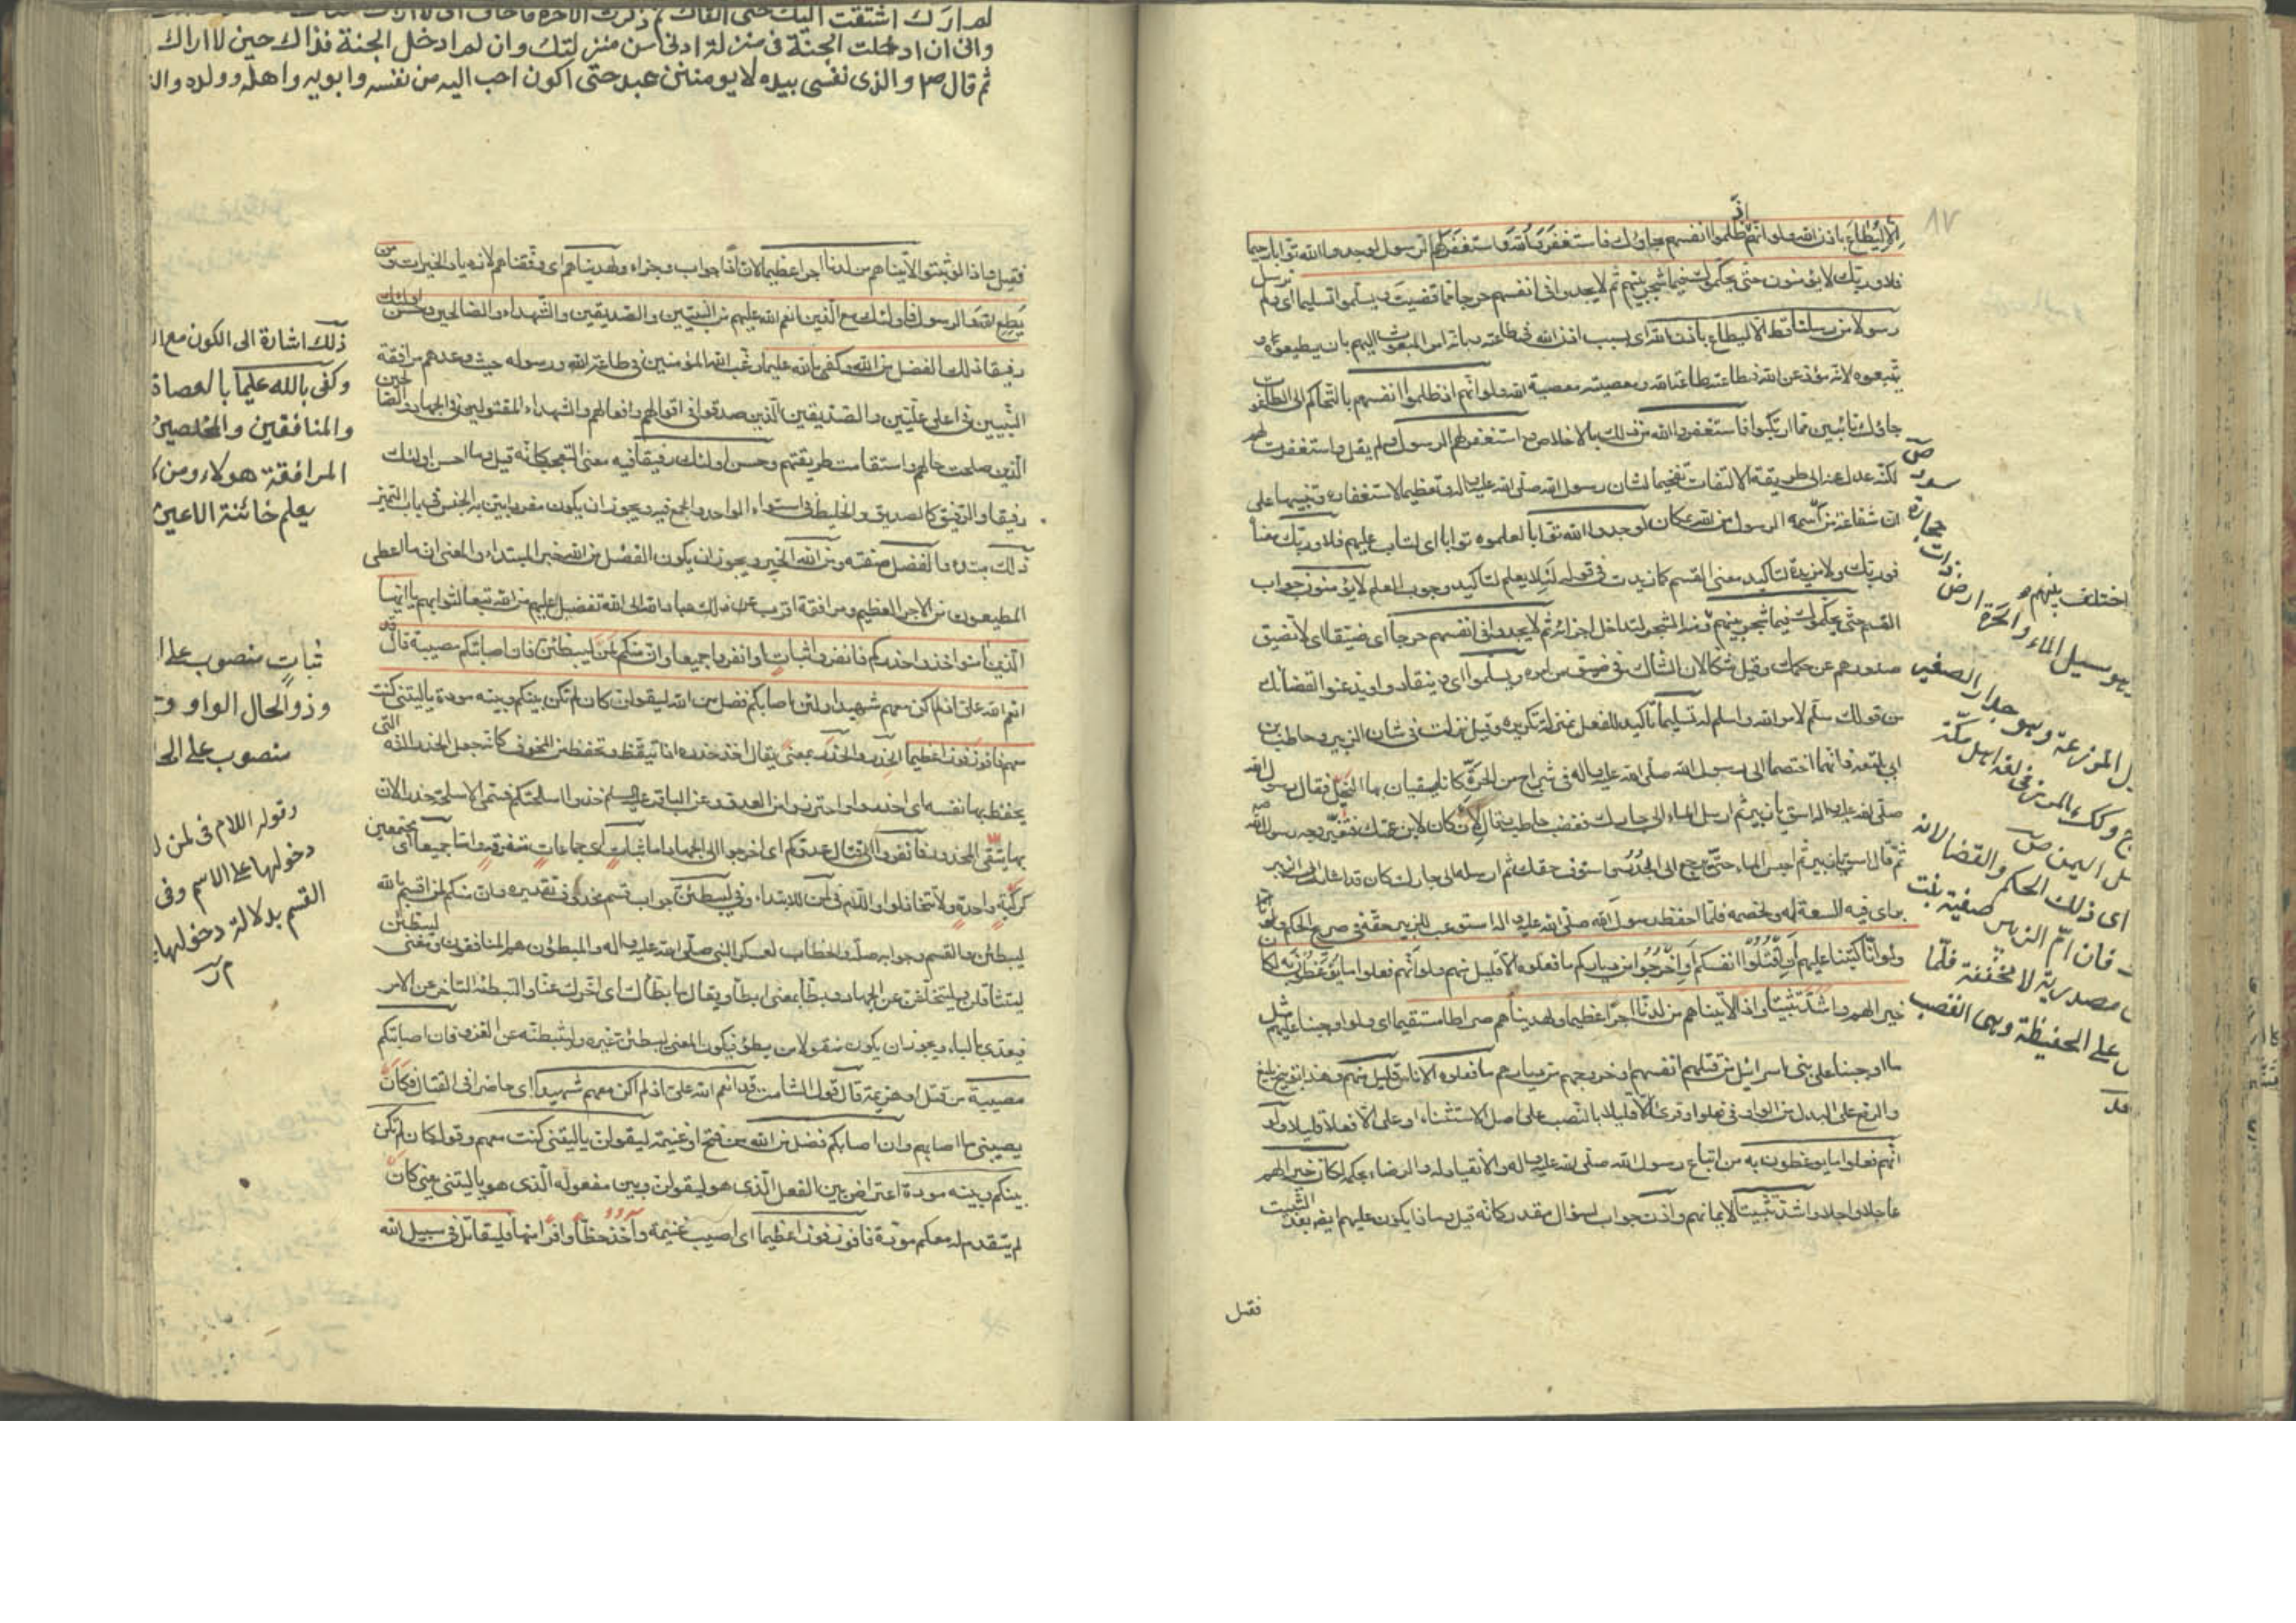 ٨٧
اذ
الا ليطاع باذن الله ولو انهم ظلموا انفسهم جاؤك فاستغفروا الله واستغفر لهم الرسول لوجدوا الله توابا رحيما
فلا وربك لا يؤمنون حتى يحكموك فيما شجر بينهم ثم لا يجدوا فى انفسهم حرجا مما قضيت ويسلموا تسليما اى ولم نرسل
رسولا من رسلنا قط الا ليطاع باذن الله اى بسبب اذن الله فى طاعته وبانه امر المبعوث اليهم بان يطيعوه و
يتبعوه لانه مؤد عن الله فطاعته طاعة الله ومعصيته معصية الله ولو انهم اذ ظلموا انفسهم بالتحاكم الى الطاغوت
جاؤك تائبين مما ارتكبوا فاستغفروا الله من ذلك بالاخلاص واستغفر لهم الرسول ولم يقل واستغفرت لهم
لكنه عدل عنه الى طريقة الالتفات تفخيما لشان رسول الله صلى الله عليه واله وتعظيما لاستغفاره وتنبيها على
ان شفاعة من اسمه الرسول من الله بمكان لوجدوا الله توابا لعلموه توابا اى لتاب عليهم فلا وربك معناه
فوربك ولا مزيدة لتاكيد معنى القسم كما زيدت فى قوله لئلا يعلم لتاكيد وجوب العلم لا يؤمنون جواب
القسم حتى يحكموك فيما شجر بينهم ومنه الشجر لتداخل اجزائه ثم لا يجدوا فى انفسهم حرجا اى ضيقا اى لا تضيق
صدورهم عن حكمك وقيل شكا لان الشاك فى ضيق من امره ويسلموا اى وينقادوا ويذعنوا لقضائك
من قولك سلم لامر الله واسلم له تسليما تاكيد للفعل بمنزلة تكريره وقيل نزلت فى شان الزبير وحاطب بن
ابى بلتعة فانهما اختصما الى رسول الله صلى الله عليه واله فى شراج من الحرة كانا يسقيان بها النخل فقال رسول الله
صلى الله عليه واله اسق يا زبير ثم ارسل الماء الى جارك فغضب حاطب فقال لان كان لابن عمتك فتغير وجه رسول الله
ثم قال اسق يا زبير ثم احبس الماء حتى يرجع الى الجدر واستوف حقك ثم ارسله الى جارك كان قد اشار الى الزبير
براى فيه السعة له ولخصمه فلما احفظ رسول الله صلى الله عليه واله استوعب للزبير حقه فى صريح الحكم
ولو انا كتبنا عليهم ان اقتلوا انفسكم او اخرجوا من دياركم ما فعلوه الا قليل منهم ولو انهم فعلوا ما يوعظون به لكان
خيرا لهم واشد تثبيتا واذا لآتيناهم من لدنا اجرا عظيما ولهديناهم صراطا مستقيما اى ولو اوجبنا عليهم مثل
ما اوجبنا على بنى اسرائيل من قتلهم انفسهم وخروجهم من ديارهم ما فعلوه الا ناس قليل منهم وهذا توبيخ بليغ
والرفع على البدل من الواو فى فعلوا وقرئ الا قليلا بالنصب على اصل الاستثناء او على الا فعلا قليلا ولو
انهم فعلوا ما يوعظون به من اتباع رسول الله صلى الله عليه واله والانقياد له والرضاء بحكمه لكان خيرا لهم
عاجلا واجلا واشد تثبيتا لايمانهم واذن جواب لسؤال مقدر كانه قيل وماذا يكون عليهم ايضا بعد التثبيت
فقيل
اختلف بينهم
سيل الماء والحرة ارض ذات حجارة سود ص
المزرعة وهو جدار الصغير
فى لغة اهل مكة
اهل اليمن ص
اى ذلك الحكم والقضا لانه
فان ام الزبير صفية بنت
مصدرية لا مخففة فلما
على الحفيظة وهى الغضب
لم ارك اشتقت اليك حتى القاك ثم ذكرت الاخرة
وانى ان ادخلت الجنة فى منزلة ادنى من منزلتك وان لم ادخل الجنة فذاك حين لا اراك
ثم قال ص والذى نفسى بيده لا يومنن عبد حتى اكون احب اليه من نفسه وابويه واهله وولده
فقيل واذا لو ثبتوا لآتيناهم من لدنا اجرا عظيما لان اذا جواب وجزاء ولهديناهم اى وفقناهم لازدياد الخيرات ومن
يطع الله والرسول فاولئك مع الذين انعم الله عليهم من النبيين والصديقين والشهداء والصالحين وحسن اولئك
رفيقا ذلك الفضل من الله وكفى بالله عليما رغب الله المؤمنين فى طاعة الله ورسوله حيث وعدهم مرافقة
النبيين فى اعلى عليين والصديقين الذين صدقوا فى اقوالهم وافعالهم والشهداء المقتولين فى الجهاد والصالحين
الذين صلحت حالهم واستقامت طريقتهم وحسن اولئك رفيقا فيه معنى التعجب كانه قيل وما احسن اولئك
رفيقا والرفيق كالصديق والخليط فى استواء الواحد والجمع فيه ويجوز ان يكون مفردا بين به الجنس فى باب التمييز
ذلك مبتدء والفضل صفته ومن الله الخبر ويجوز ان يكون الفضل من الله خبر المبتداء والمعنى ان ما اعطى
المطيعون من الاجر العظيم ومرافقة اقرب عباد الله الى الله تفضل عليهم من الله تبعا لثوابهم يا ايها
الذين آمنوا خذوا حذركم فانفروا ثبات او انفروا جميعا وان منكم لمن ليبطئن فان اصابتكم مصيبة قال قد
انعم الله على اذ لم اكن معهم شهيدا ولئن اصابكم فضل من الله ليقولن كان لم تكن بينكم وبينه مودة يا ليتنى كنت
معهم فافوز فوزا عظيما الحذر والحذر بمعنى يقال اخذ حذره اذا تيقظ وتحفظ من المخوف كانه جعل الحذر الته التى
يحفظ بها نفسه اى احذروا واحترزوا من العدو وعن الباقر عليه السلم خذوا اسلحتكم فسمى الاسلحة حذرا لان
بها يتقى المحذور فانفروا الى قتال عدوكم اى اخرجوا الى الجهاد اما ثبات اى جماعات متفرقة واما جميعا اى مجتمعين
كركبة واحدة ولا تتخاذلوا واللام فى لمن للابتداء وفى ليبطئن جواب قسم محذوف تقديره وان منكم لمن اقسم بالله
ليبطئن والقسم وجوابه صلة والخطاب لعسكر النبى صلى الله عليه واله والمبطئون هم المنافقون ومعنى ليبطئن
ليتثاقلن وليتخلفن عن الجهاد وبطأ بمعنى ابطأ ويقال ما بطأ بك اى اخرك عنا والتبطئة التاخر عن الامر
فيعدى بالباء ويجوز ان يكون منقولا من بطؤ فيكون المعنى ليبطئن غيره وليثبطنه عن الغزو فان اصابتكم
مصيبة من قتل او هزيمة قال قول الشامت قد انعم الله على اذ لم اكن معهم شهيدا اى حاضرا فى القتال فكان
يصيبنى ما اصابهم وان اصابكم فضل من الله من فتح او غنيمة ليقولن يا ليتنى كنت معهم وقوله كان لم تكن
بينكم وبينه مودة اعتراض بين الفعل الذى هو ليقولن وبين مفعوله الذى هو يا ليتنى يعنى كان
لم يتقدم له معكم مودة فافوز فوزا عظيما اى اصيب غنيمة وآخذ حظا وافرا منها فليقاتل فى سبيل الله
ذلك اشارة الى الكون مع
وكفى بالله عليما بالعصاة
والمنافقين والمخلصين
المرافقة هولاء ومن
يعلم خائنة الاعين
ثبات منصوب على
وذو الحال الواو
منصوب على
وقوله اللام فى لمن
دخولها على الاسم وفى
القسم بدلالة دخولها